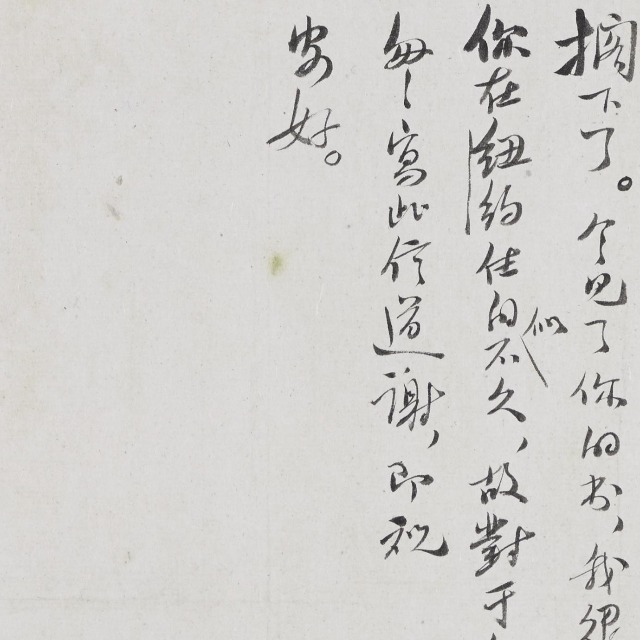 摘下了。今见了你的书，我很
你在纽约住的似不久，故對于
匆匆寫此信道謝，即祝
安好。